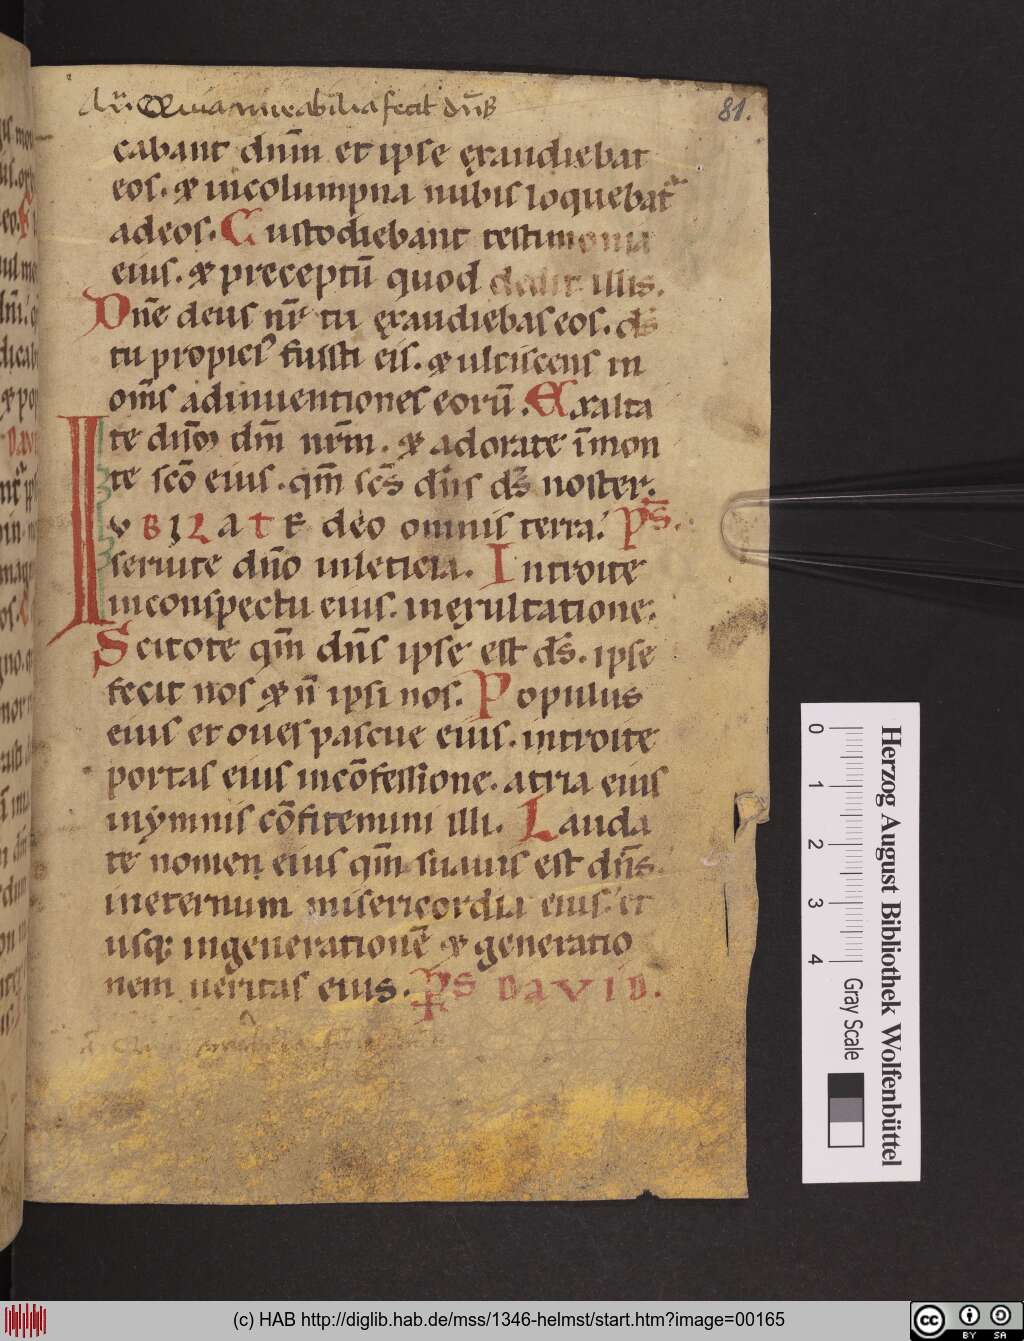 Quia mirabilia fecit dn̄s
81.
cabant dnm̄ et ipse ęxaudiebat
eos. & incolumpna nubis loquebat᷑
adeos. Custodiebant testimonia
eius. & preceptū quod dedit illis.
Dn̄e deus nr̄ tu ęxaudiebas eos. ds̄
tu propici᷒ fuisti eis. & ulciscens in
om̄s adinuentiones eorū. Exalta
te dn̄m dm̄ nr̄m. & adorate īmon
te scō eius. qm̄ scs̄ dn̄s ds̄ noster.
IVBILATE deo omnis terra. ps̄.
seruite dn̄o inleticia. Introite
inconspectu eius. inęxultatione.
Scitote qm̄ dn̄s ipse est ds̄. ipse
fecit nos & n̄ ipsi nos. Populus
eius et oues pascue eius. introite
portas eius incōfessione. atria eius
inymnis cōfitemini illi. Lauda
te nomen eius qm̄ suauis est dn̄s.
ineternum misericordia eius. et
usq; ingenerationē & generatio
nem ueritas eius. PS DAVID.
0 1 2 3 4
Herzog August Bibliothek Wolfenbüttel
Gray Scale
(c) HAB http://diglib.hab.de/mss/1346-helmst/start.htm?image=00165
cc BY SA